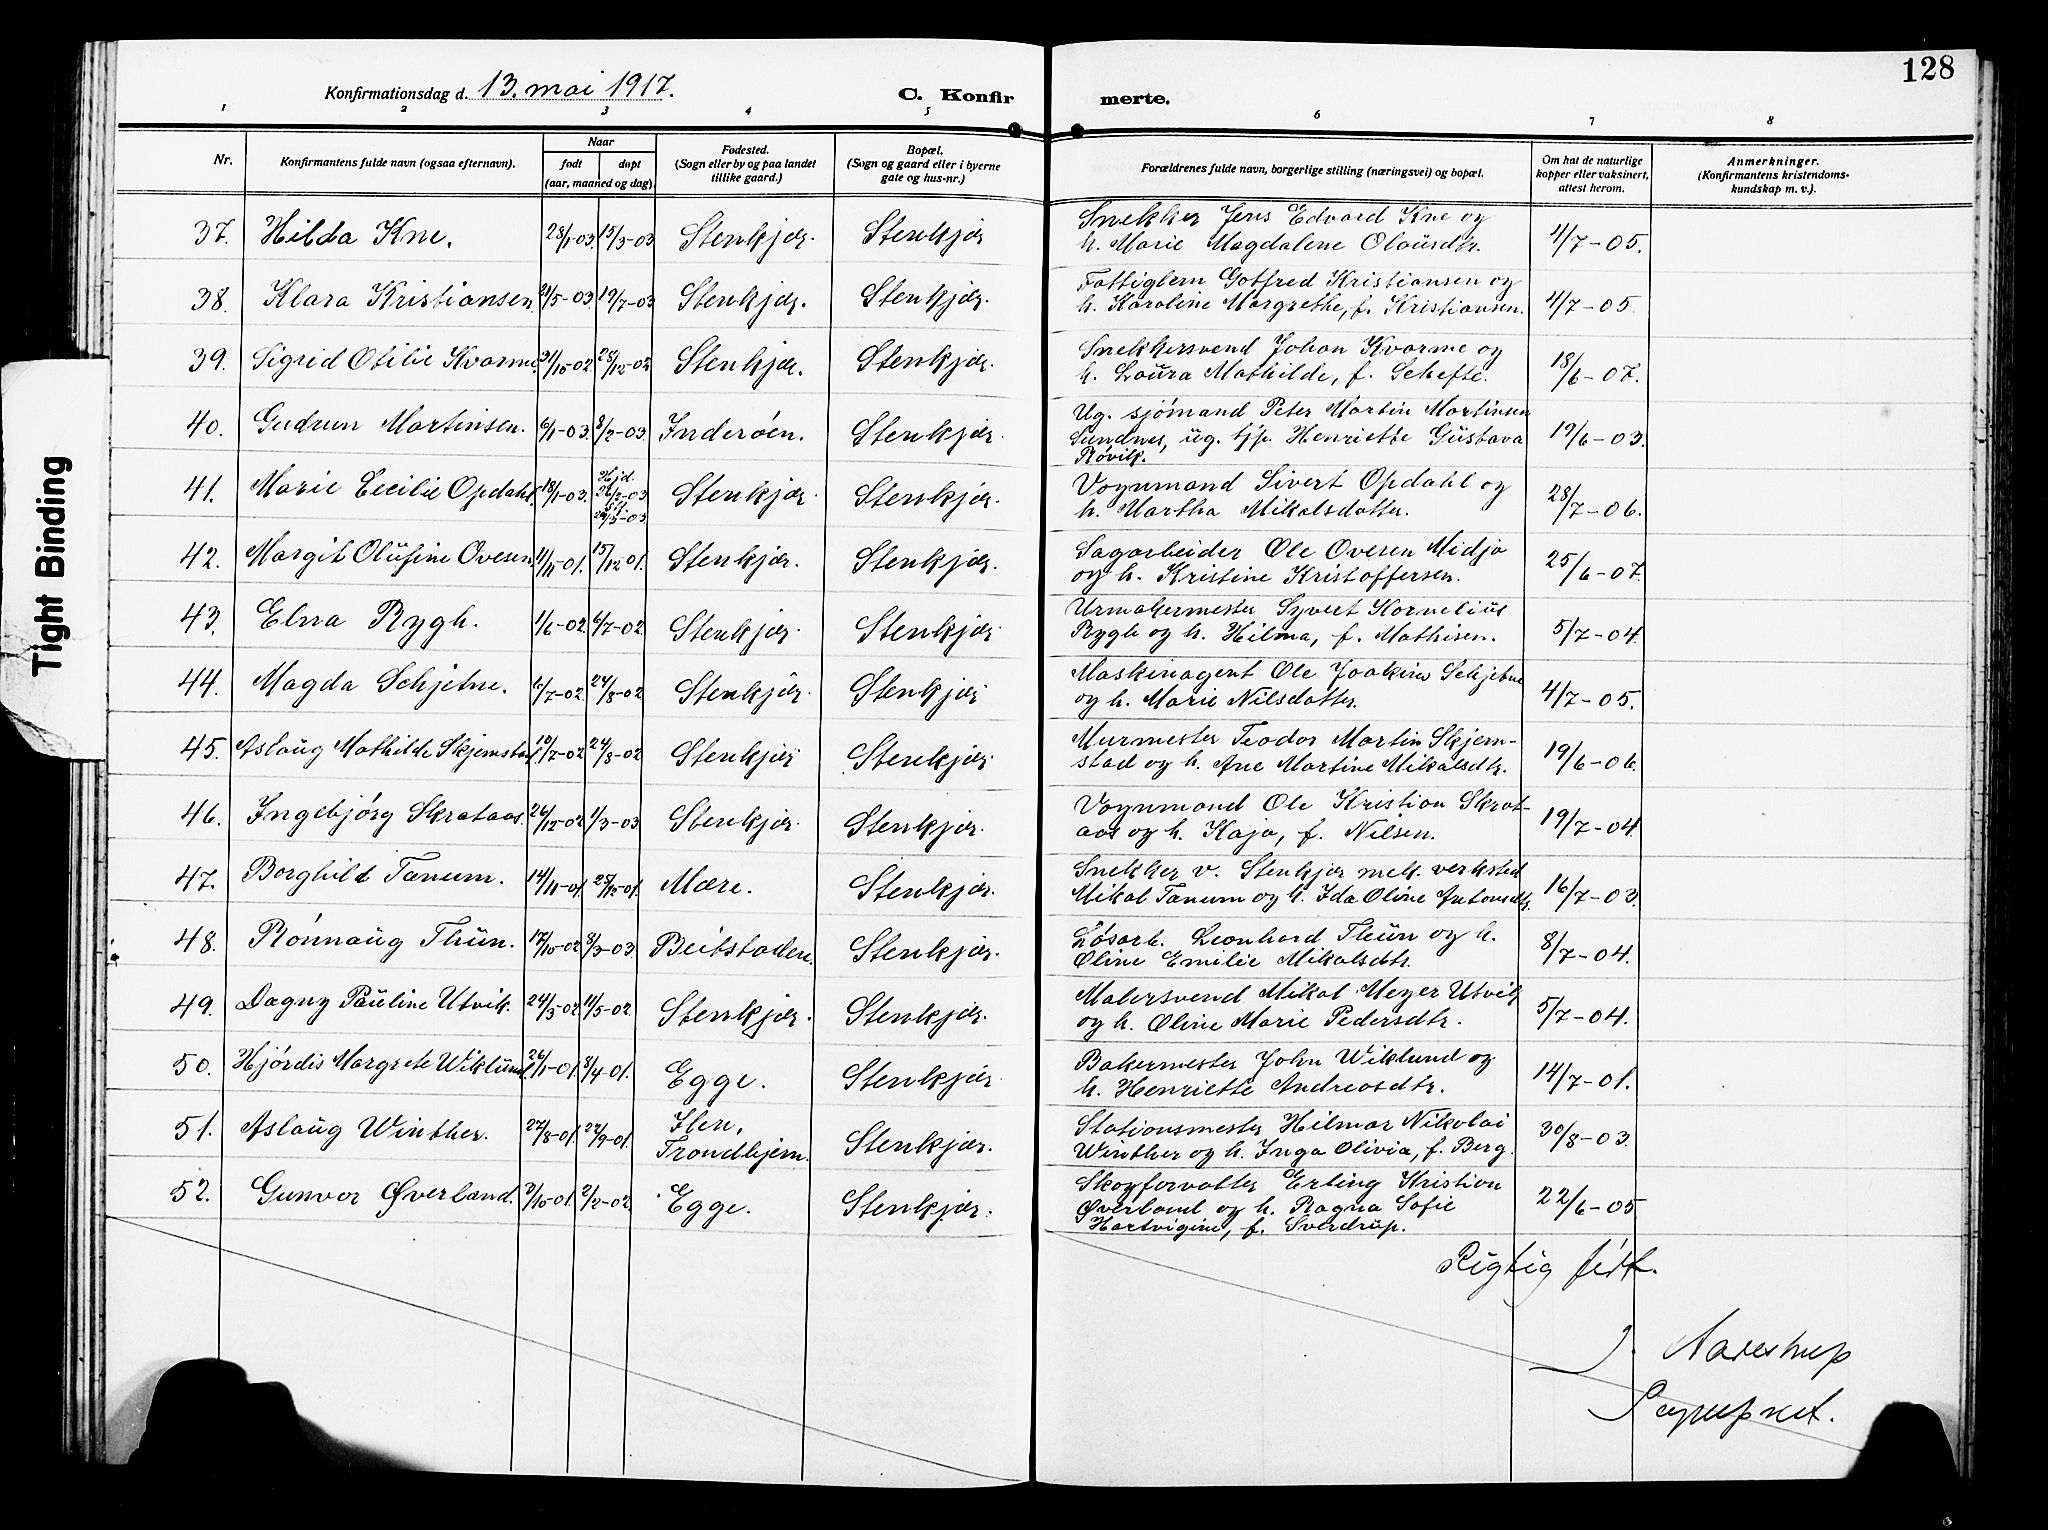 128
Konfirmationsdag d. 13. mai 1917.
C. Konfir
merte.
1 2 3 4 5 6 7 8
Nr.
Konfirmantens fulde navn (ogsaa efternavn).
Naar
født
døpt
(aar, maaned og dag).
Fødested.
(Sogn eller by og paa landet
tillike gaard.)
Bopæl.
(Sogn og gaard eller i byerne
gate og hus-nr.)
Forældrenes fulde navn, borgerlige stilling (næringsvei) og bopæl.
Om hat de naturlige
kopper eller vaksinert,
attest herom.
Anmerkninger.
(Konfirmantens kristendoms-
kundskap m. v.).
37. Hilda Kne. 28/1-03. 15/3-03 Stenkjær. Stenkjær Snekker Jens Edvard Kne og
h. Marie Magdalene Olausdtr. 4/7-05.
38. Klara Kristiansen 21/5-03. 19/7-03 Stenkjær. Stenkjær. Fattiglem Gotfred Kristiansen og
h. Karoline Margrethe, f. Kristiansen. 4/7-05.
39. Sigrid Otilie Kvarme. 31/10-02. 28/12-02 Stenkjær. Stenkjær. Snekkersvend Johan Kvarme og
h. Laura Mathilde, f. Schefte. 18/6-07.
40. Gudrun Martinsen. 6/1-03. 8/2-03. Inderøen. Stenkjær. Ug. sjømand Peter Martin Martinsen
Sundnes, ug. tjp. Henriette Gustava
Røvik. 19/6-03.
41. Marie Cecilie Opdahl 18/1-03. Hjd.
26/2-03
st.
24/5-03 Stenkjær. Stenkjær. Vognmand Sivert Opdahl og
h. Martha Mikalsdatter. 28/7-06.
42. Margit Olufine Ovesen 4/11-01. 15/12 01. Stenkjær. Stenkjær. Sagarbeider Ole Ovesen Midjo
og h. Kristine Kristoffersen. 25/6-07.
43. Elna Rygh. 1/6-02. 6/7-02. Stenkjær. Stenkjær. Urmakermester Syvert Kornelius
Rygh og h. Hilma, f. Mathisen. 5/7-04.
44. Magda Schjetne. /7-02. 24/8-02 Stenkjær. Stenkjær Maskinagent Ole Joakim Schjetne
og h. Marie Nilsdatter. 4/7-05.
45. Aslaug Mathilde Skjemstad 10/7-02 24/8-02 Stenkjær Stenkjær Murmester Teodor Martin Skjem-
stad og h. Ane Martine Mikalsdtr. 19/6-06.
46. Ingebjørg Skrataas. 26/12-02 1/3-03 Stenkjær. Stenkjær. Vognmand Ole Kristian Skrat-
aas og h. Kaja, f. Nilsen. 19/7-04.
47. Borghild Tanum. 14/11-01. 25/12-01. Mære. Stenkjær. Snekker v. Stenkjær mek. verksted
Mikal Tanum og h. Ida Oline Antonsdtr. 16/7-03.
48. Rønnaug Thun. 17/10-02 8/3-03. Beitstaden. Stenkjær. Løsarb. Leonhard Thun og h.
Oline Emilie Mikalsdtr. 8/7-04.
49. Dagny Pauline Utvik. 24/3-02 11/5-02. Stenkjær. Stenkjær. Malersvend Mikal Meyer Utvik
og h. Oline Marie Pedersdtr. 5/7-04.
50. Hjørdis Margrete Wiklund 26/1-01. 8/4-01. Egge. Stenkjær. Bakermester John Wiklund og
h. Henriette Andreasdtr. 14/7-01.
51. Aslaug Winther. 27/8-01. 22/9-01. Ilen,
Trondhjem. Stenkjær. Stationsmester Hilmar Nikolai
Winther og h. Inga Olivia, f. Berg. 30/8-03.
52. Gunvor Øverland. /10-01. 2/2-02. Egge. Stenkjær. Skogforvalter Erling Kristian
Øverland og h. Ragna Sofie
Hartvigine, f. Sverdrup. 22/6-05
Rigtig ført.
J. Aarestrup
Sogneprest.
Tight Binding